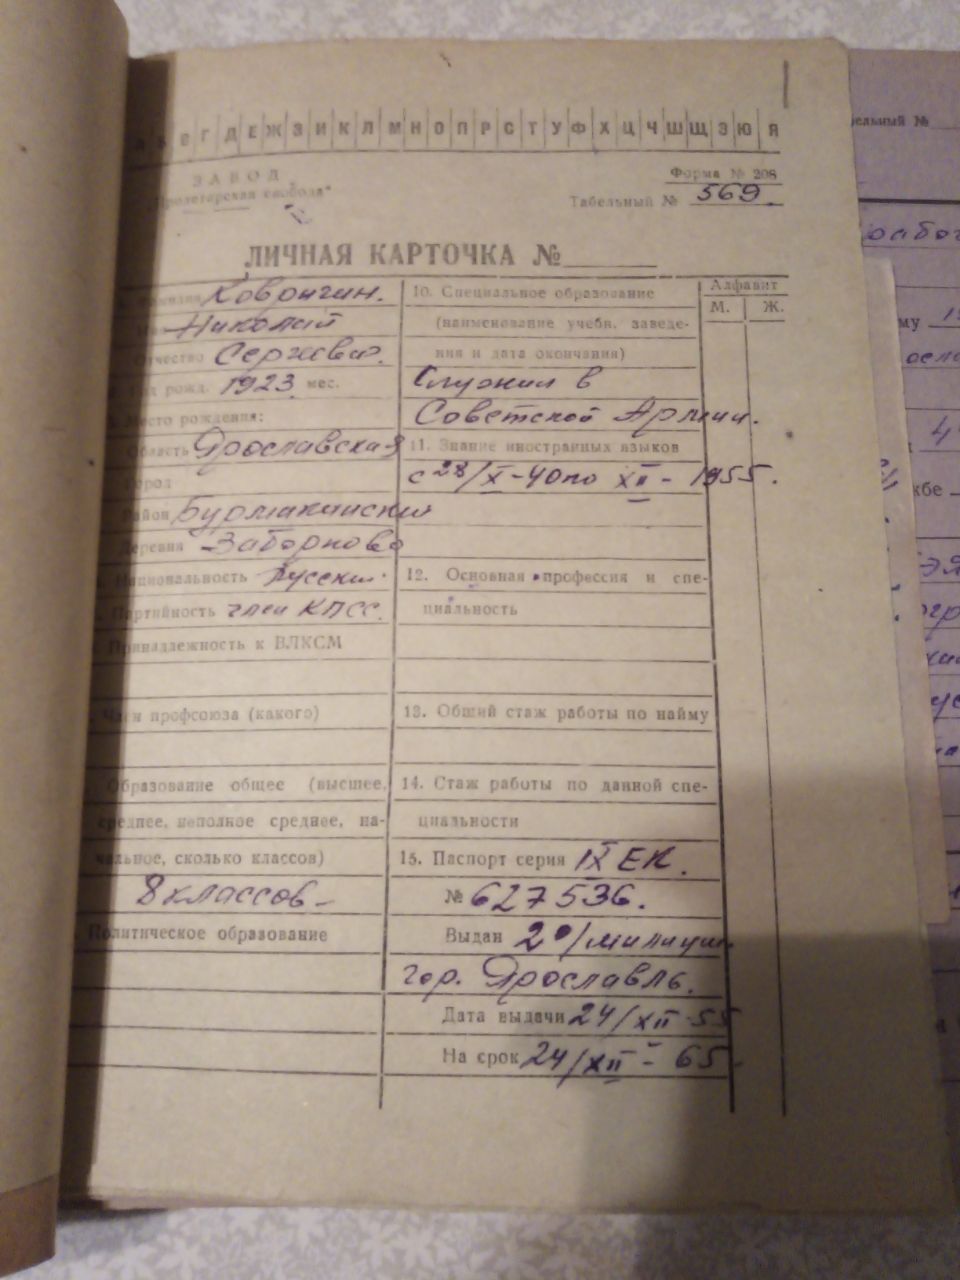 В Г Д Е Ж З И К Л М Н О П Р С Т У Ф Х Ц Ч Ш Щ Э Ю Я
ЗАВОД
"Пролетарская свобода"
Форма № 208
Табельный № 569.
ЛИЧНАЯ КАРТОЧКА №
Фамилия Ковригин.
Николай
Отчество Сергеевич.
Год рожд. 1923 мес.
Место рождения:
Область Ярославская
Город
Район Бурмакинский
Деревня - Заборново
Национальность Русский.
Партийность член КПСС.
Принадлежность к ВЛКСМ
Член профсоюза (какого)
Образование общее (высшее,
среднее, неполное среднее, на-
чальное, сколько классов)
8 классов -
Политическое образование
10. Специальное образование
(наименование учебн. заведе-
ния и дата окончания)
Служил в
Советской Армии.
11. Знание иностранных языков
с 28/X - 40 по XII - 1955.
12. Основная профессия и спе-
циальность
13. Общий стаж работы по найму
14. Стаж работы по данной спе-
циальности
15. Паспорт серия IX ЕК.
№ 627536.
Выдан 2о/милиции
гор. Ярославль.
Дата выдачи 24/XII-55
На срок 24/XII - 65 -
Алфавит
М. Ж.
ельный №
му
бе